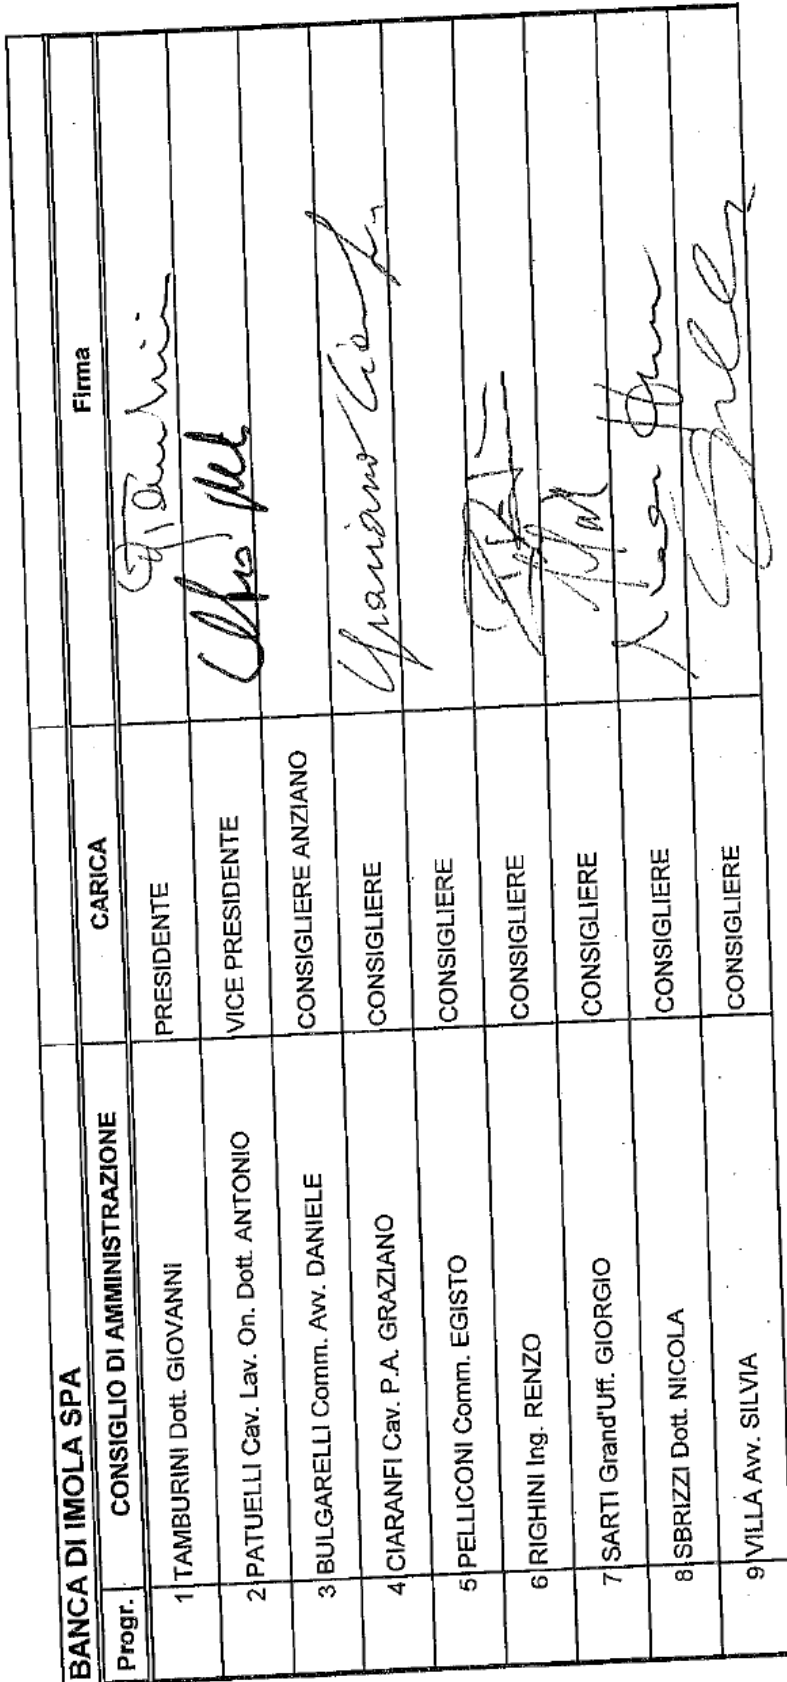 BANCA DI IMOLA SPA
Progr. CONSIGLIO DI AMMINISTRAZIONE CARICA Firma
1 TAMBURINI Dott. GIOVANNI PRESIDENTE
2 PATUELLI Cav. Lav. On. Dott. ANTONIO VICE PRESIDENTE
3 BULGARELLI Comm. Avv. DANIELE CONSIGLIERE ANZIANO
4 CIARANFI Cav. P.A. GRAZIANO CONSIGLIERE Graziano
5 PELLICONI Comm. EGISTO CONSIGLIERE
6 RIGHINI Ing. RENZO CONSIGLIERE
7 SARTI Grand'Uff. GIORGIO CONSIGLIERE
8 SBRIZZI Dott. NICOLA CONSIGLIERE
9 VILLA Avv. SILVIA CONSIGLIERE